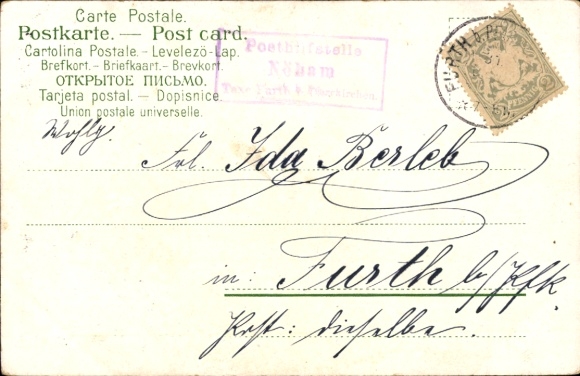 Carte Postale.
Postkarte. — Post card.
Cartolina Postale. - Levelezö-Lap.
Brefkort. - Briefkaart. - Brevkort.
ОТКРЫТОЕ ПИСЬМО.
Tarjeta postal. – Dopisnice.
Union postale universelle.
Posthilfstelle
Näham
Taxe Furth b.
FURTH
Wohlg.
Frl. Ida Berleb
in: Furth b/Kfk.
Post: dieselbe.